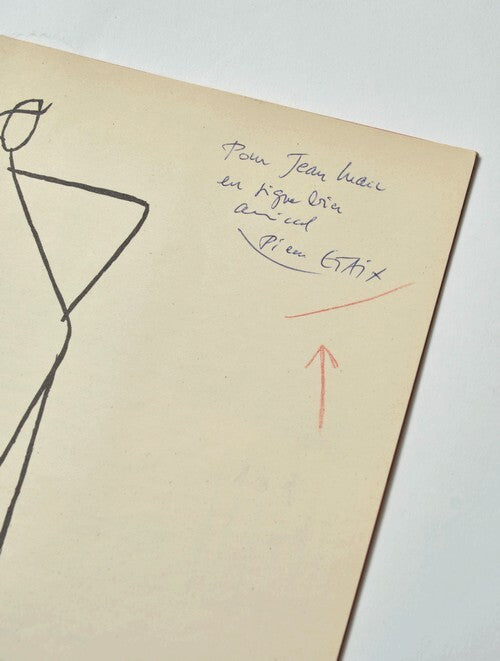 Pour Jean Marc
en signe bien
amical
Pierre ETAIX